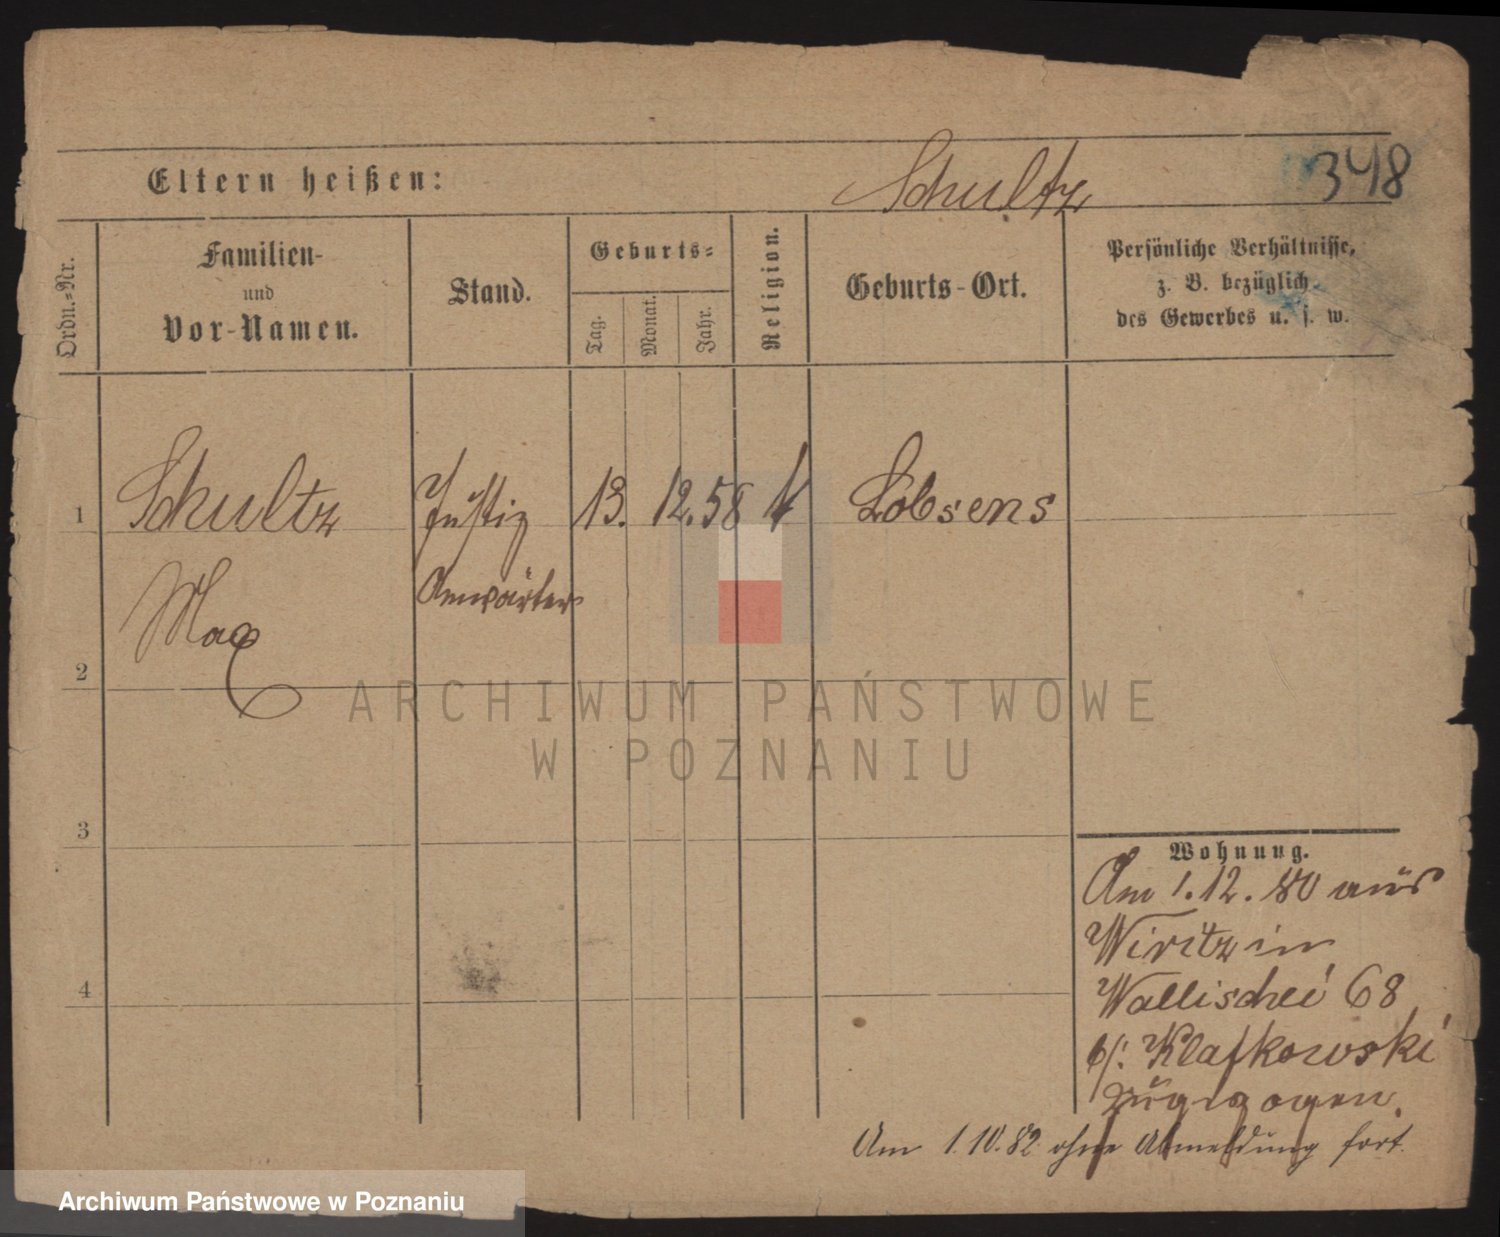 Eltern heißen:
Schultz
348
Ordn.-Nr.
Familien-
und
Vor-Namen.
Stand.
Geburts-
Tag.
Monat.
Jahr.
Religion.
Geburts-Ort.
Persönliche Verhältnisse,
z. B. bezüglich
des Gewerbes u. s. w.
1 Schultz Justiz 13. 12. 58 k Lobsens
Anwärter
Max
2
ARCHIWUM PAŃSTWOWE
W POZNANIU
3
Wohnung.
Am 1. 12. 80 aus
Wirsitz in
Wallischei 68
b/. Klafkowski
zugezogen.
4
Am 1.10.82 ohne Abmeldung fort.
Archiwum Państwowe w Poznaniu